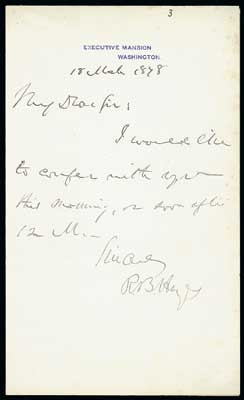 3
EXECUTIVE MANSION
WASHINGTON.
18 Mch 1878
My Dear Sir:
I would like
to confer with you
this morning, or soon after
12 M.—
Sincerely
R. B. Hayes